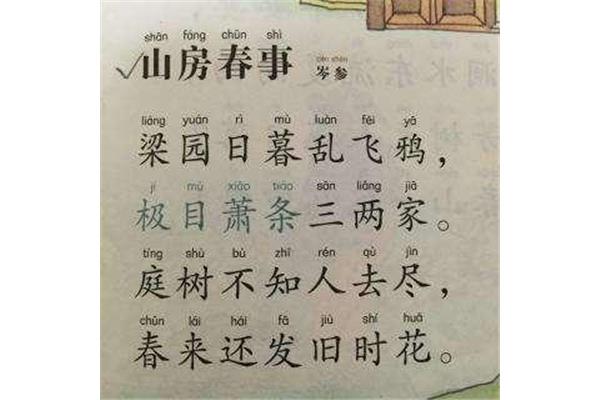 shān fáng chūn shì cén shēn
山房春事 岑参
liáng yuán rì mù luàn fēi yā
梁园日暮乱飞鸦，
jí mù xiāo tiáo sān liǎng jiā
极目萧条三两家。
tíng shù bù zhī rén qù jìn
庭树不知人去尽，
chūn lái hái fā jiù shí huā
春来还发旧时花。